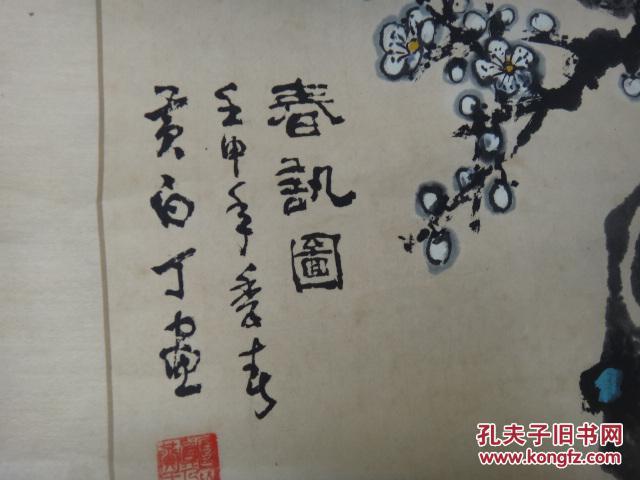 春訊圖
壬申年季春
白丁畫
孔夫子旧书网
www.kongfz.com